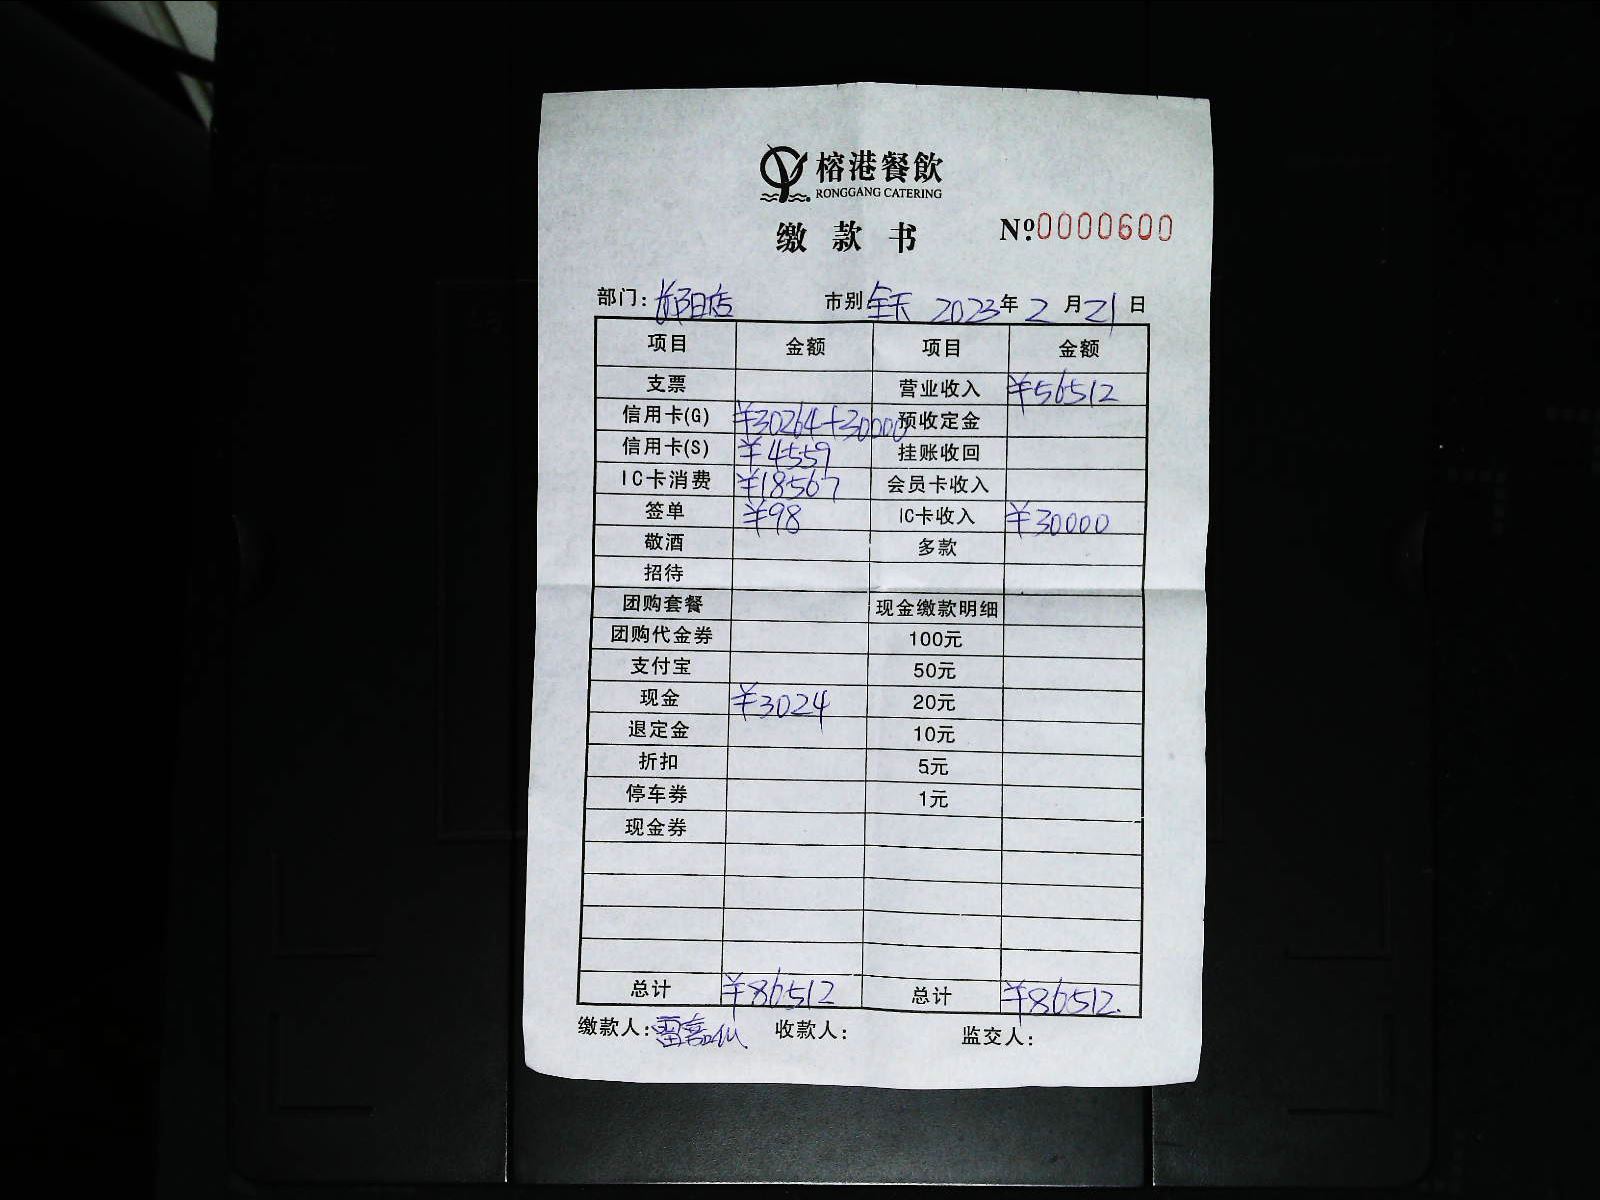 榕港餐飲
RONGGANG CATERING
缴款书 Nº.0000600
部门: 市别 全天 2023年 2月 21日
项目 金额 项目 金额
支票 营业收入 ¥56512
信用卡(G) ¥30264+30000 预收定金
信用卡(S) ¥4559 挂账收回
IC卡消费 ¥18567 会员卡收入
签单 ¥98 IC卡收入 ¥30000
敬酒 多款
招待
团购套餐 现金缴款明细
团购代金券 100元
支付宝 50元
现金 ¥3024 20元
退定金 10元
折扣 5元
停车券 1元
现金券
总计 ¥86512 总计 ¥86512.
缴款人: 收款人: 监交人: